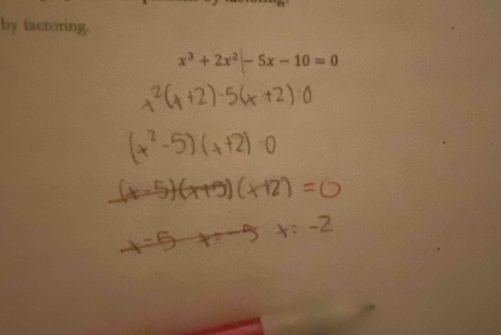 by factoring.
x³ + 2x² - 5x - 10 = 0
x²(x+2)-5(x+2)=0
(x²-5)(x+2)=0
(x-5)(x+5)(x+2) = 0
x=5 x=-5 x=-2